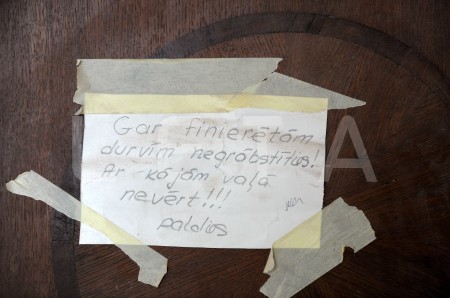 Gar finierētām
durvīm negrābstīties!
Ar kājām vaļā
nevērt!!!
paldies